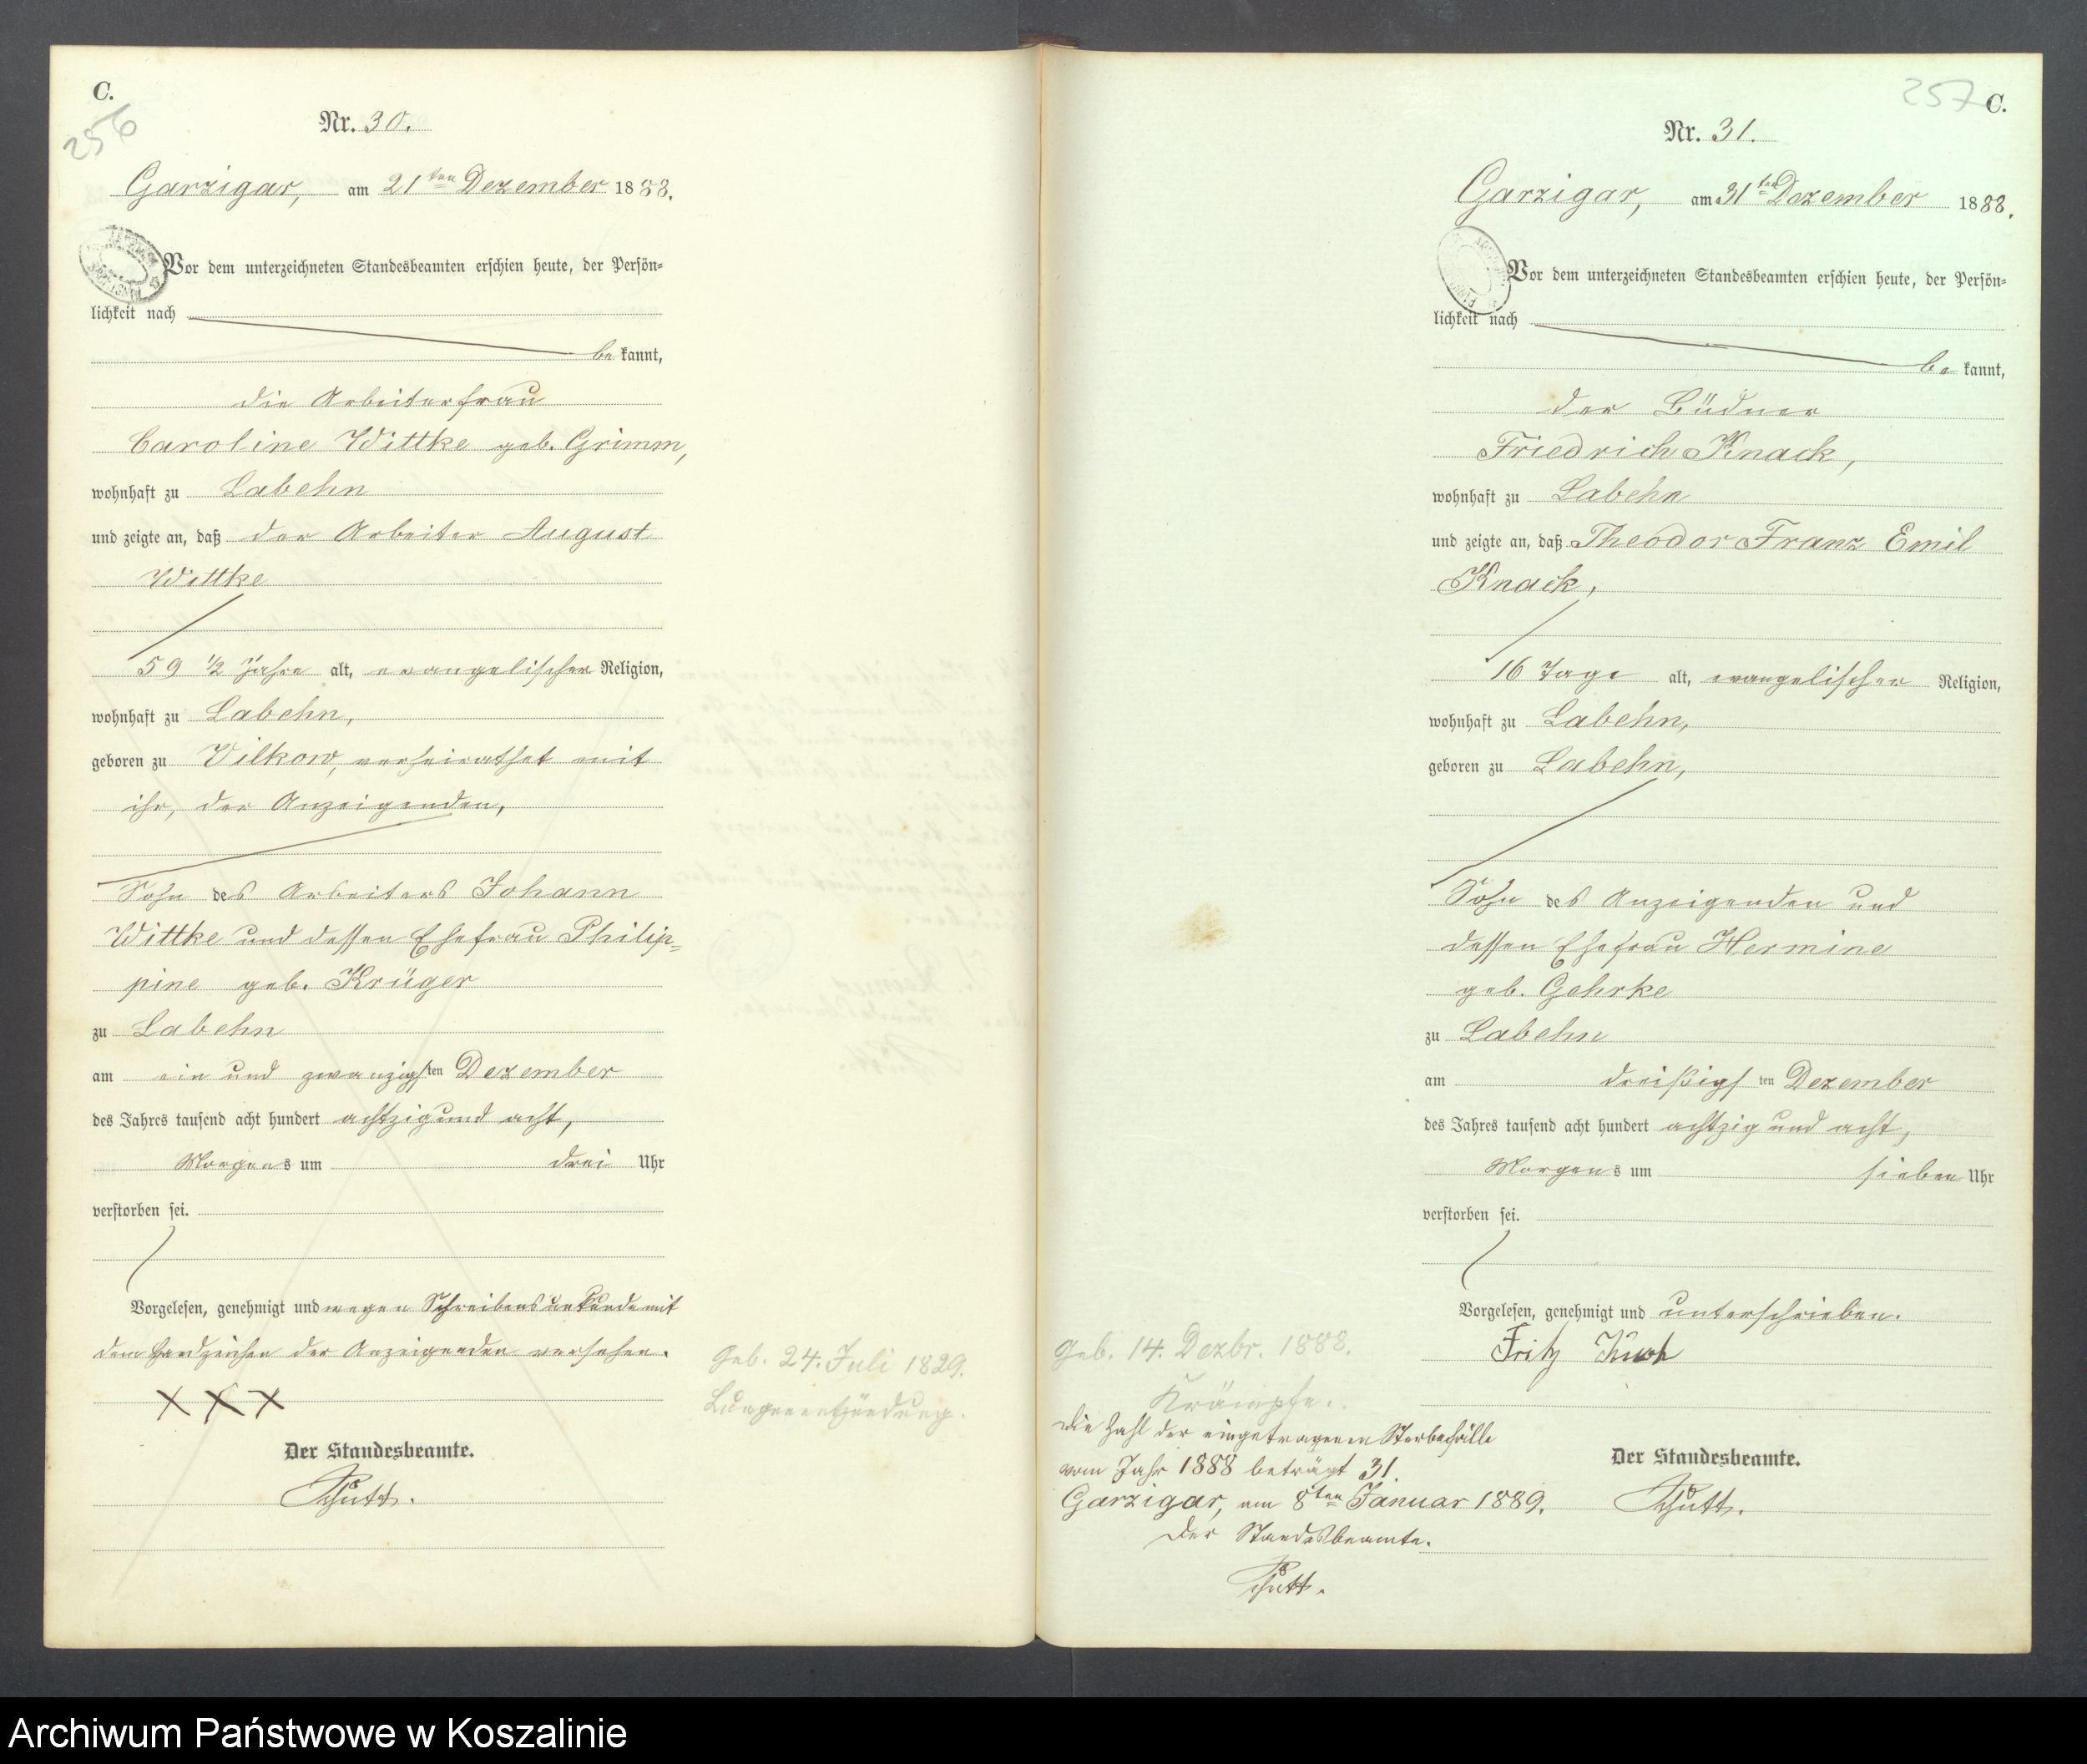 C.
256
Nr. 30.
Garzigar, am 21ten Dezember 1888.
Vor dem unterzeichneten Standesbeamten erschien heute, der Persön=
lichkeit nach
bekannt,
die Arbeiterfrau
Caroline Wittke geb. Grimm,
wohnhaft zu Labehn
und zeigte an, daß der Arbeiter August
Wittke
59 1/2 Jahre alt, evangelischer Religion,
wohnhaft zu Labehn,
geboren zu Vilkow, verheirathet mit
ihr, der Anzeigenden,
Sohn des Arbeiters Johann
Wittke und dessen Ehefrau Philip=
pine geb. Krüger
zu Labehn
am ein und zwanzigsten Dezember
des Jahres tausend acht hundert achtzig und acht,
Morgens um drei Uhr
verstorben sei.
Vorgelesen, genehmigt und wegen Schreibensunkunde mit
dem Handzeichen der Anzeigenden versehen.
XXX
Geb. 24. Juli 1829.
Lungenentzündung.
Der Standesbeamte.
Schütt.
257
C.
Nr. 31.
Garzigar, am 31ten Dezember 1888.
Vor dem unterzeichneten Standesbeamten erschien heute, der Persön=
lichkeit nach
bekannt,
der Büdner
Friedrich Knack,
wohnhaft zu Labehn
und zeigte an, daß Theodor Franz Emil
Knack,
16 Tage alt, evangelischer Religion,
wohnhaft zu Labehn,
geboren zu Labehn,
Sohn des Anzeigenden und
dessen Ehefrau Hermine
geb. Gehrke
zu Labehn
am dreißigsten Dezember
des Jahres tausend acht hundert achtzig und acht,
Morgens um sieben Uhr
verstorben sei.
Vorgelesen, genehmigt und unterschrieben.
Fritz
Geb. 14. Dezbr. 1888.
Krämpfe.
Die Zahl der eingetragenen Sterbefälle
vom Jahr 1888 beträgt 31.
Garzigar, am 8ten Januar 1889.
Der Standesbeamte.
Schütt.
Der Standesbeamte.
Schütt.
Archiwum Państwowe w Koszalinie